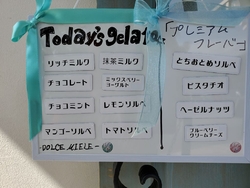 Today's gelato
リッチミルク
抹茶ミルク
チョコレート
ミックスベリー
ヨーグルト
チョコミント
レモンソルベ
マンゴーソルベ
トマトソルベ
-DOLCE MIELE-
「プレミアム
フレーバー」
とちおとめソルベ
ピスタチオ
ヘーゼルナッツ
ブルーベリー
クリームチーズ